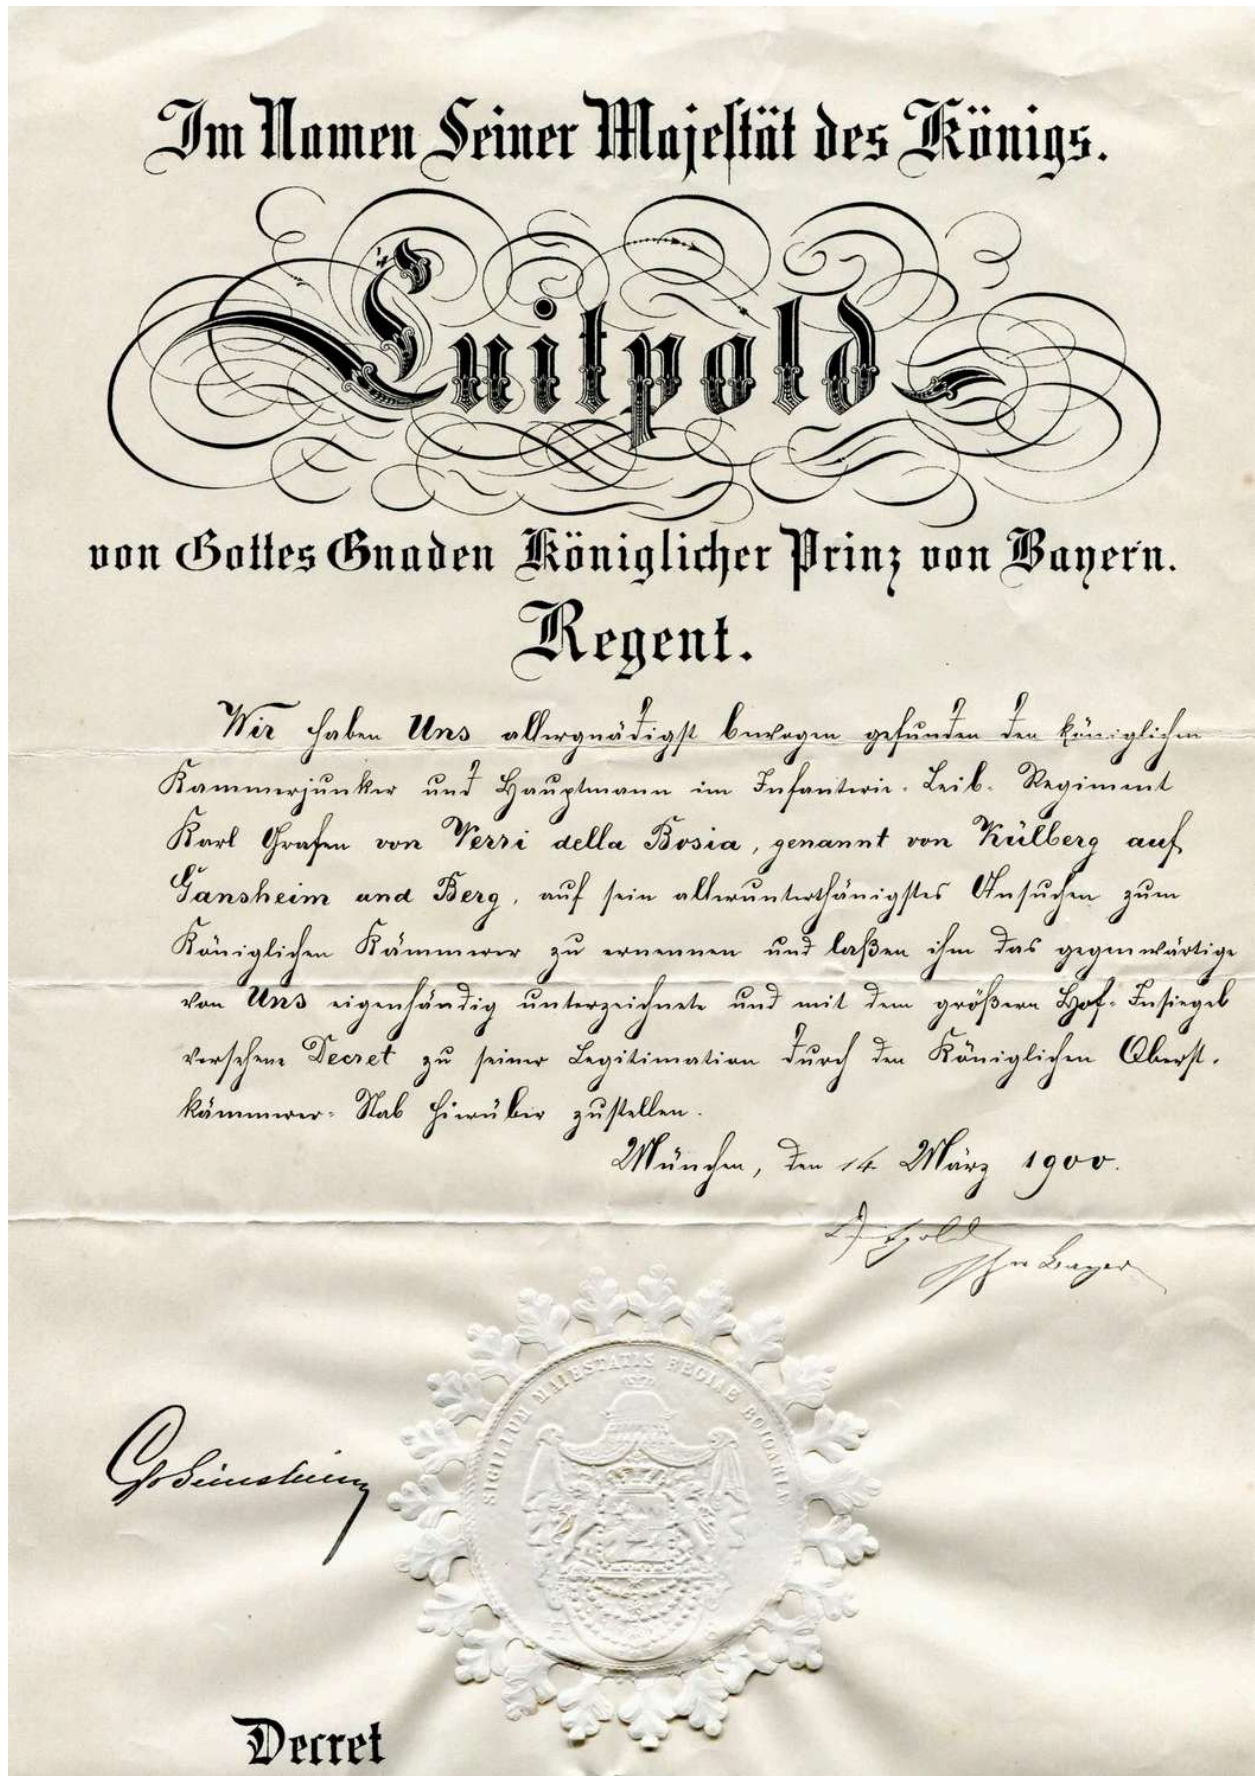 Im Namen Seiner Majestät des Königs.
Luitpold
von Gottes Gnaden Königlicher Prinz von Bayern.
Regent.
Wir haben Uns allergnädigst bewogen gefunden den königlichen
Kammerjunker und Hauptmann im Infanterie-Leib-Regiment
Karl Grafen von Verri della Bosia, genannt von Külberg auf
Gansheim und Berg, auf sein allerunterthänigstes Ansuchen zum
Königlichen Kämmerer zu ernennen und laßen ihm das gegenwärtige
von Uns eigenhändig unterzeichnete und mit dem größern Hof-Insiegel
versehene Decret zu seiner Legitimation durch den Königlichen Oberst-
kämmerer-Stab hierüber zustellen.
München, den 14 März 1900.
Luitpold
SIGILLUM MAIESTATIS REGIAE BOIOARIAE
Decret